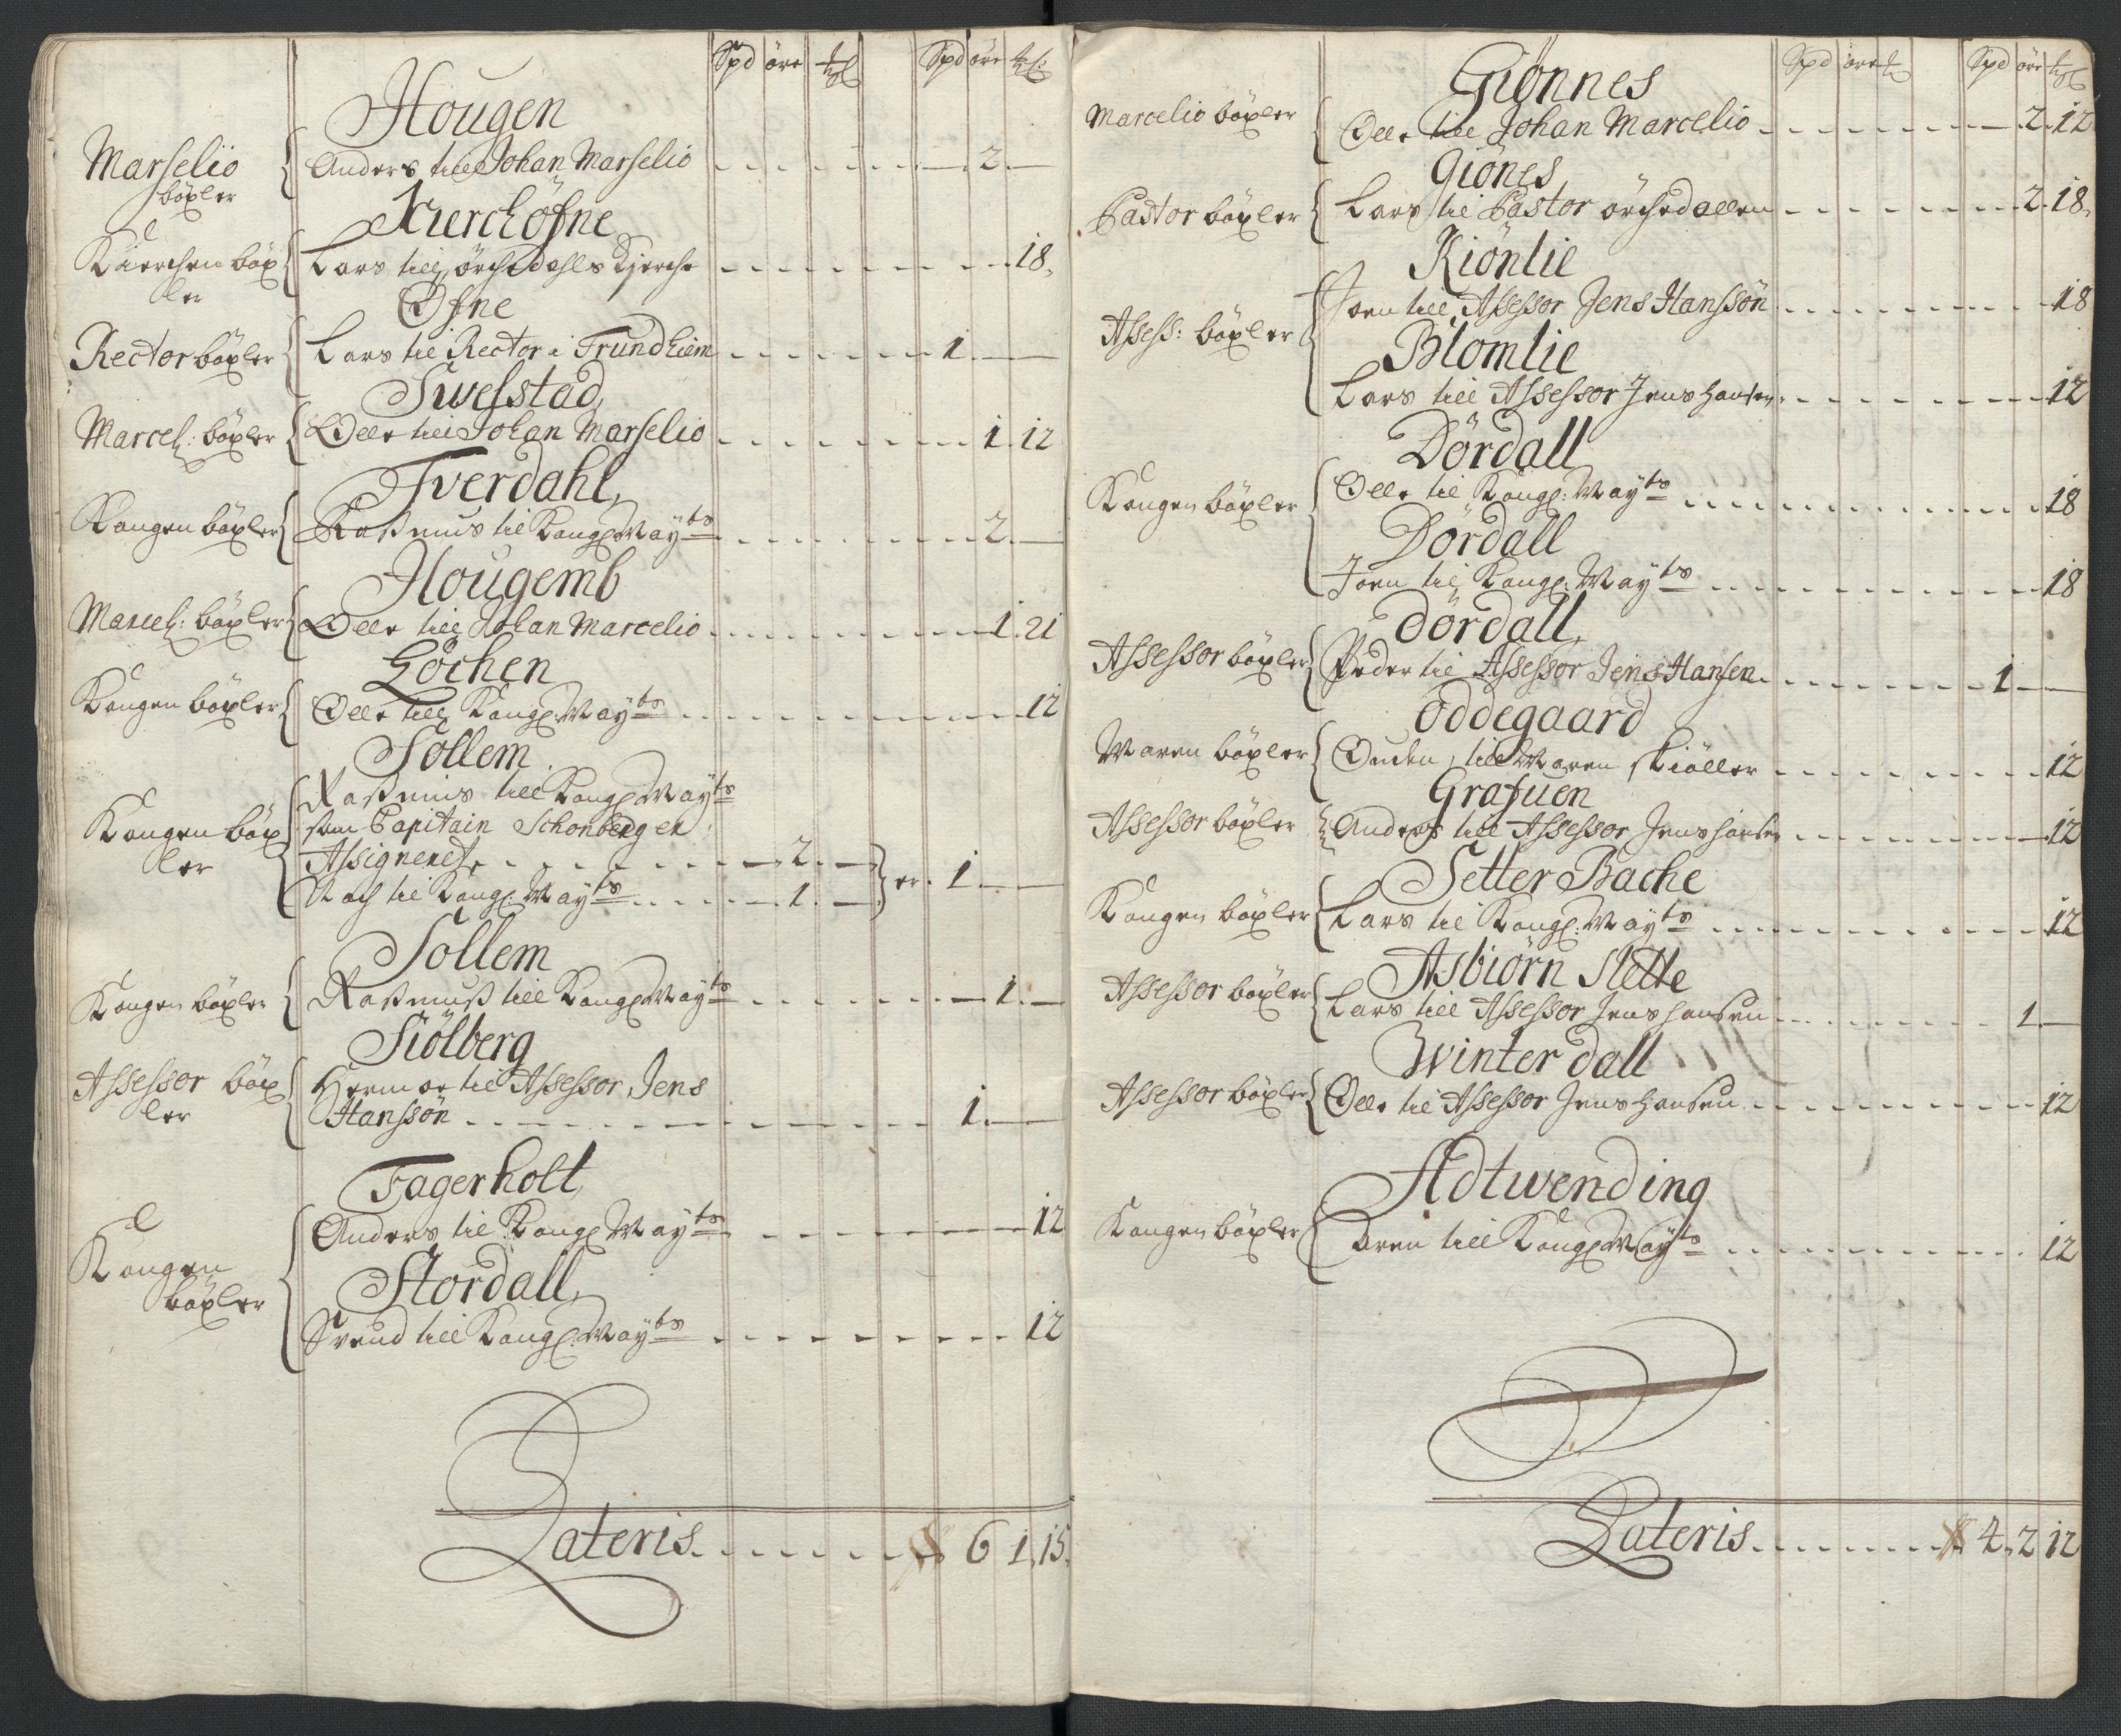 Spd öre
Spd öre
Hougen
Marselio
böxler
Anders till Johan Marselio - 2 -
Kierchöfne
Kierchen böx
ler
Lars till örchedahls Kierche 18
Öfne
Rector böxler
Lars til Rector i Trundhiem 1 -
Swefstad
Marcel: böxler
Olle till Johan Marselio 1 12
Tverdahl
Kongen böxler
Rasmus til Kongl: Mayts 2 -
Hougemb
Marcel: böxler
Olle till Johan Marcelio 1 21
Göchen
Kongen böxler
Olle till Kongl: Mayts 12
Sollem
Kongen böx
ler
Rasmus till Kongl: Mayts
som Capitain Schonberg er
Assigneret 2 -
Noch til Kongl: Mayts 1 - er 1 -
Sollem
Kongen böxler
Rasmus till Kongl: Mayts - 1 -
Siölberg
Assessor böx
ler
til Assessor Jens
Hanssön 1 -
Fagerholt
Kongen
böxler
Anders til Kongl: Mayts 12
Stordall
Svend till Kongl: Mayts 12
Lateris 6 1 15
Spd öre
Spd öre
Giönnes
Marcelio böxler
Olle till Johan Marcelio - 2 12
Giönes
Pastor böxler
Lars til Pastor örchedallen 2 18
Kiönlie
Assess: böxler
Joen till Assessor Jens Hanssön 18
Blomlie
Lars till Assessor Jens Hansen 12
Dördall
Kongen böxler
Olle til Kongl: Mayts 18
Dördall
Joen til Kongl: Mayts 18
Dördall
Assessor böxler
Peder til Assessor Jens Hansen 1 -
Oddegaard
Maren böxler
Ouden till Maren Skiöller 12
Grafuen
Assessor böxler
Anders till Assessor Jens Hansen 12
Setter Bache
Kongen böxler
Lars til Kongl: Mayts 12
Asbiörn Slette
Assessor böxler
Lars till Assessor Jens Hansen 1 -
Winterdall
Assessor böxler
Olle til Assessor Jens Hansen 12
Adtwending
Kongen böxler
Aren till Kongl: Mayts 12
Lateris 4 2 12